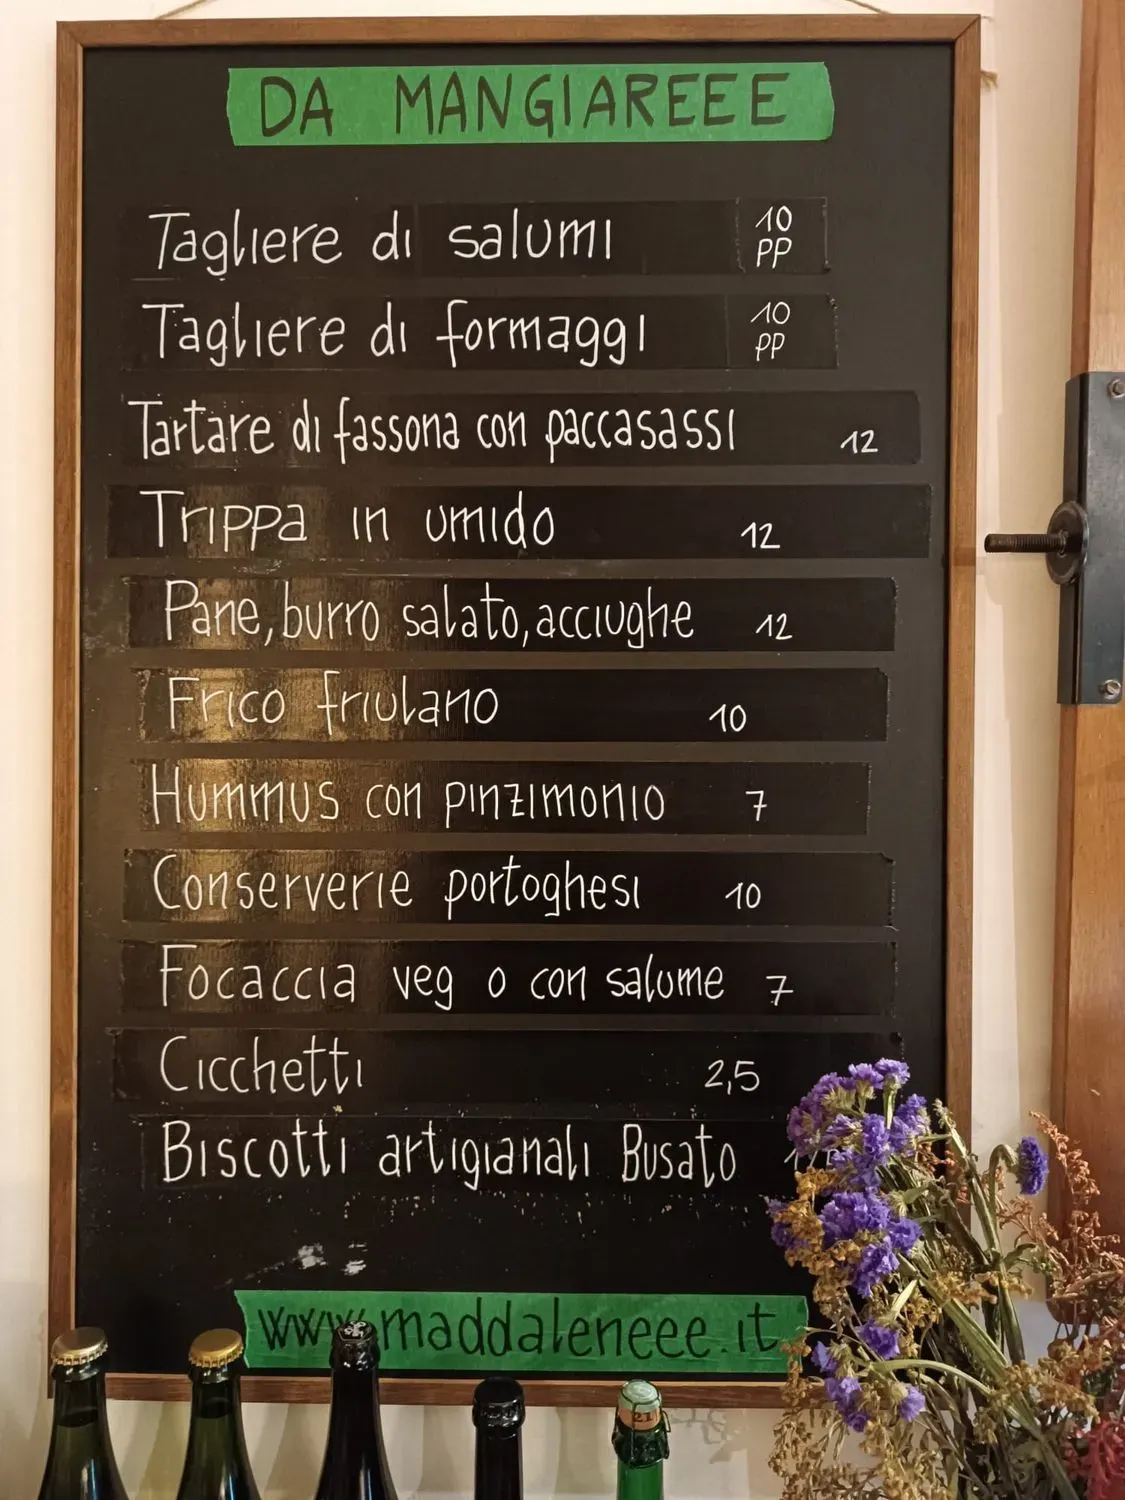 DA MANGIAREEE
Tagliere di salumi 10 PP
Tagliere di formaggi 10 PP
Tartare di fassona con paccasassi 12
Trippa in umido 12
Pane, burro salato, acciughe 12
Frico friulano 10
Hummus con pinzimonio 7
Conserverie portoghesi 10
Focaccia veg o con salume 7
Cicchetti 2,5
Biscotti artigianali Busato
www.maddaleneee.it
21